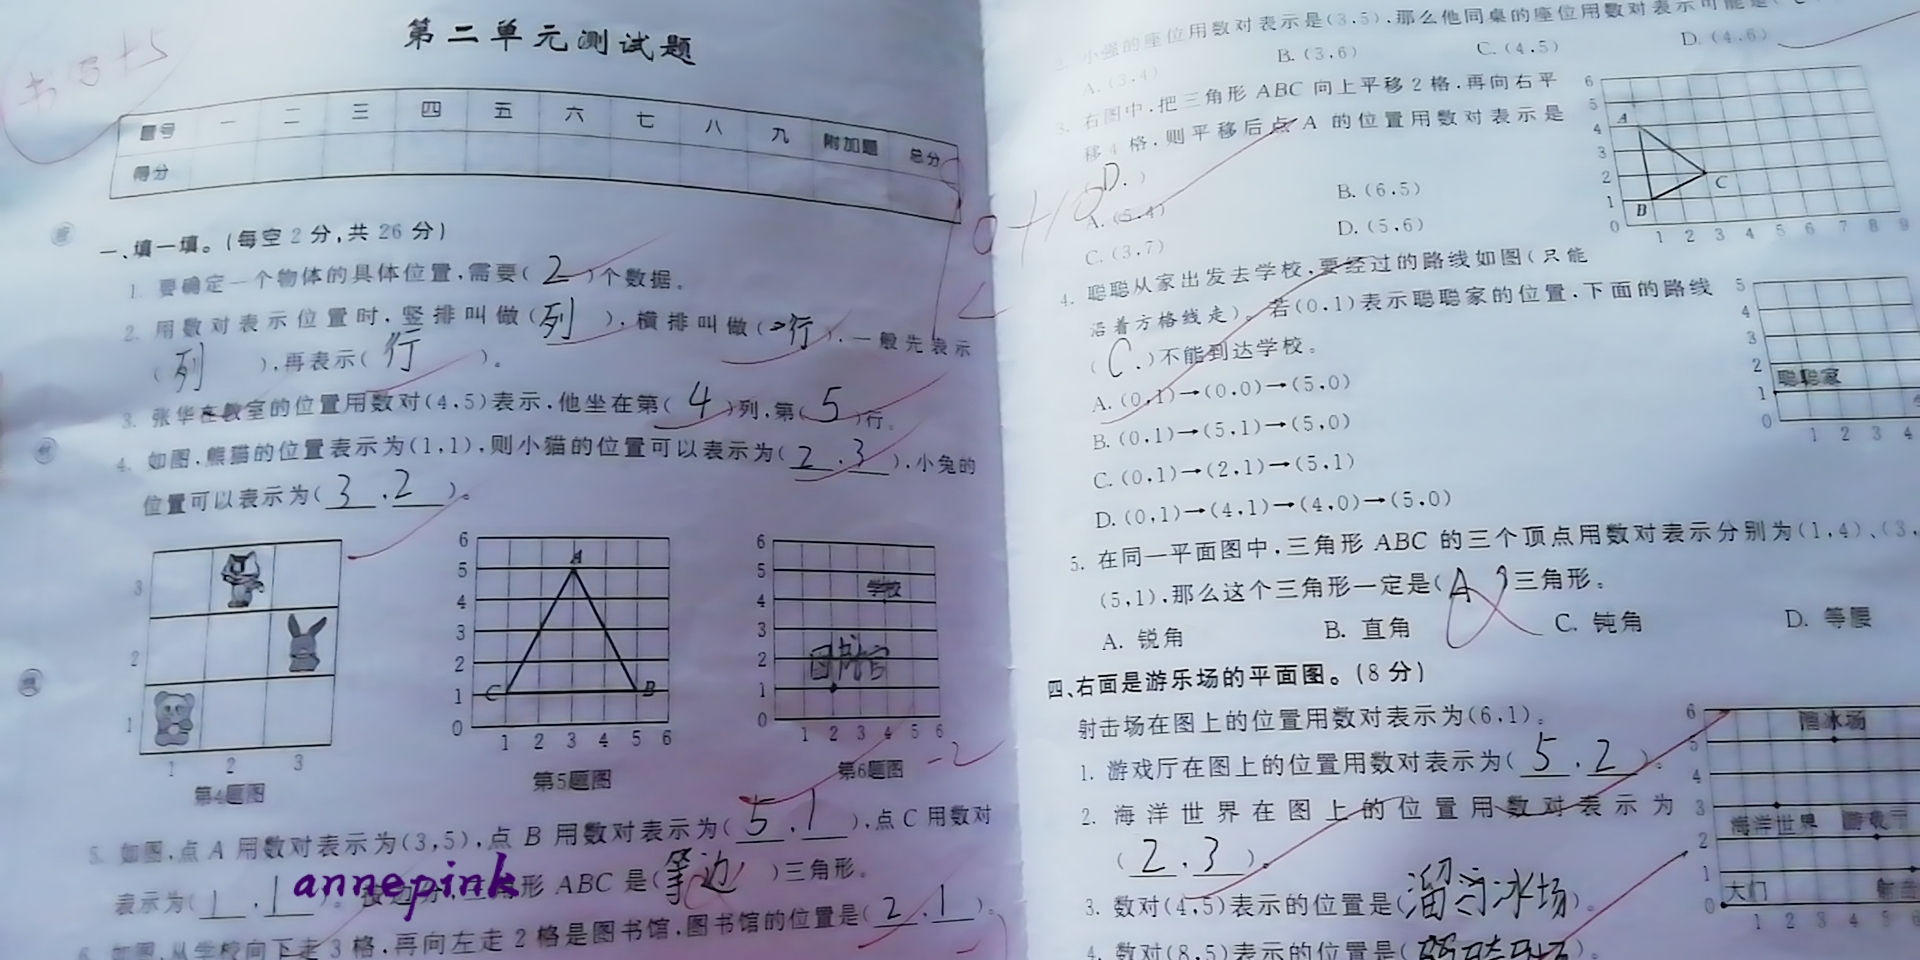 书写+5
第二单元测试题
题号 一 二 三 四 五 六 七 八 九 附加题 总分
得分
一、填一填。(每空2分,共26分)
1. 要确定一个物体的具体位置,需要( 2 )个数据。
2. 用数对表示位置时,竖排叫做( 列 ),横排叫做( 行 ),一般先表示
( 列 ),再表示( 行 )。
3. 张华在教室的位置用数对(4,5)表示,他坐在第( 4 )列,第( 5 )行。
4. 如图,熊猫的位置表示为(1,1),则小猫的位置可以表示为( 2 , 3 ),小兔的
位置可以表示为( 3 , 2 )。
3
2
1
1 2 3
第4题图
6
5
4
3
2
1
0
1 2 3 4 5 6
A
C B
第5题图
6
5
4
3
2
1
0
1 2 3 4 5 6
学校
图书馆
第6题图
-2
5. 如图,点A用数对表示为(3,5),点B用数对表示为( 5 , 1 ),点C用数对
表示为( 1 , 1 )。形ABC是( 等边 )三角形。
annepink
6. 如图,从学校向下走3格,再向左走2格是图书馆,图书馆的位置是( 2 , 1 )。
2. 小强的座位用数对表示是(3,5),那么他同桌的座位用数对表示可能是(
A. (3,4) B. (3,6) C. (4,5) D. (4,6)
3. 右图中,把三角形ABC向上平移2格,再向右平
移4格,则平移后点A的位置用数对表示是
( D. )
A. (5,4) B. (6,5)
C. (3,7) D. (5,6)
6
5
4
3
2
1
0
1 2 3 4 5 6 7 8 9
A
B
C
4. 聪聪从家出发去学校,要经过的路线如图(只能
沿着方格线走)。若(0,1)表示聪聪家的位置,下面的路线
( C. )不能到达学校。
A. (0,1)→(0,0)→(5,0)
B. (0,1)→(5,1)→(5,0)
C. (0,1)→(2,1)→(5,1)
D. (0,1)→(4,1)→(4,0)→(5,0)
5
4
3
2
聪聪家
1
0
1 2 3 4
5. 在同一平面图中,三角形ABC的三个顶点用数对表示分别为(1,4)、(3,
(5,1),那么这个三角形一定是( A )三角形。
A. 锐角 B. 直角 C. 钝角 D. 等腰
四、右面是游乐场的平面图。(8分)
射击场在图上的位置用数对表示为(6,1)。
1. 游戏厅在图上的位置用数对表示为( 5 , 2 )。
2. 海洋世界在图上的位置用数对表示为
( 2 , 3 )。
3. 数对(4,5)表示的位置是( 溜冰场 )。
4. 数对(8,5)表示的位置是(
6
5
4
3
2
1
0
溜冰场
海洋世界 游戏厅
大门 射击
1 2 3 4 5 6